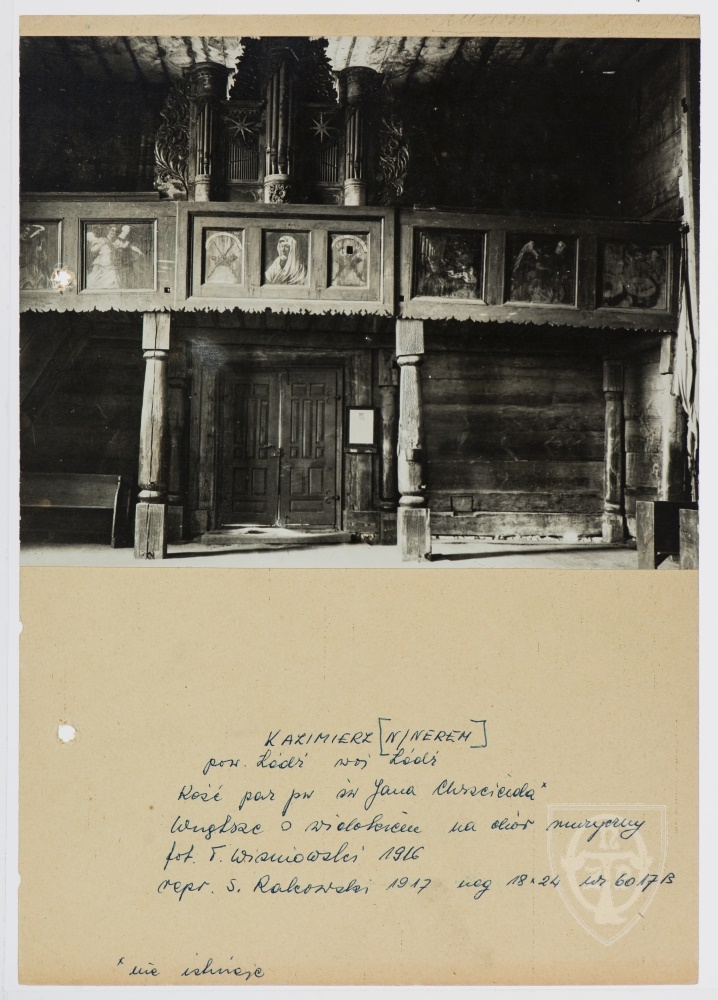 KAZIMIERZ [N/NEREM]
pow. Łódź woj Łódź
Kość par pw św Jana Chrzciciela*
Wnętrze z widokiem na chór muzyczny
fot. T. Wiśniowski 1916
repr. S. Rakowski 1917 neg 18×24 nr 6017B
* nie istnieje